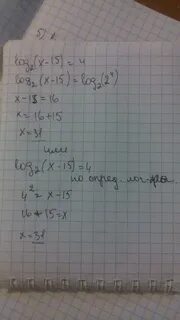 log₂(x-15)=4
log₂(x-15)=log₂(2⁴)
x-15=16
x=16+15
x=31
или
log₂(x-15)=4
по опред.
4²=x-15
16+15=x
x=31